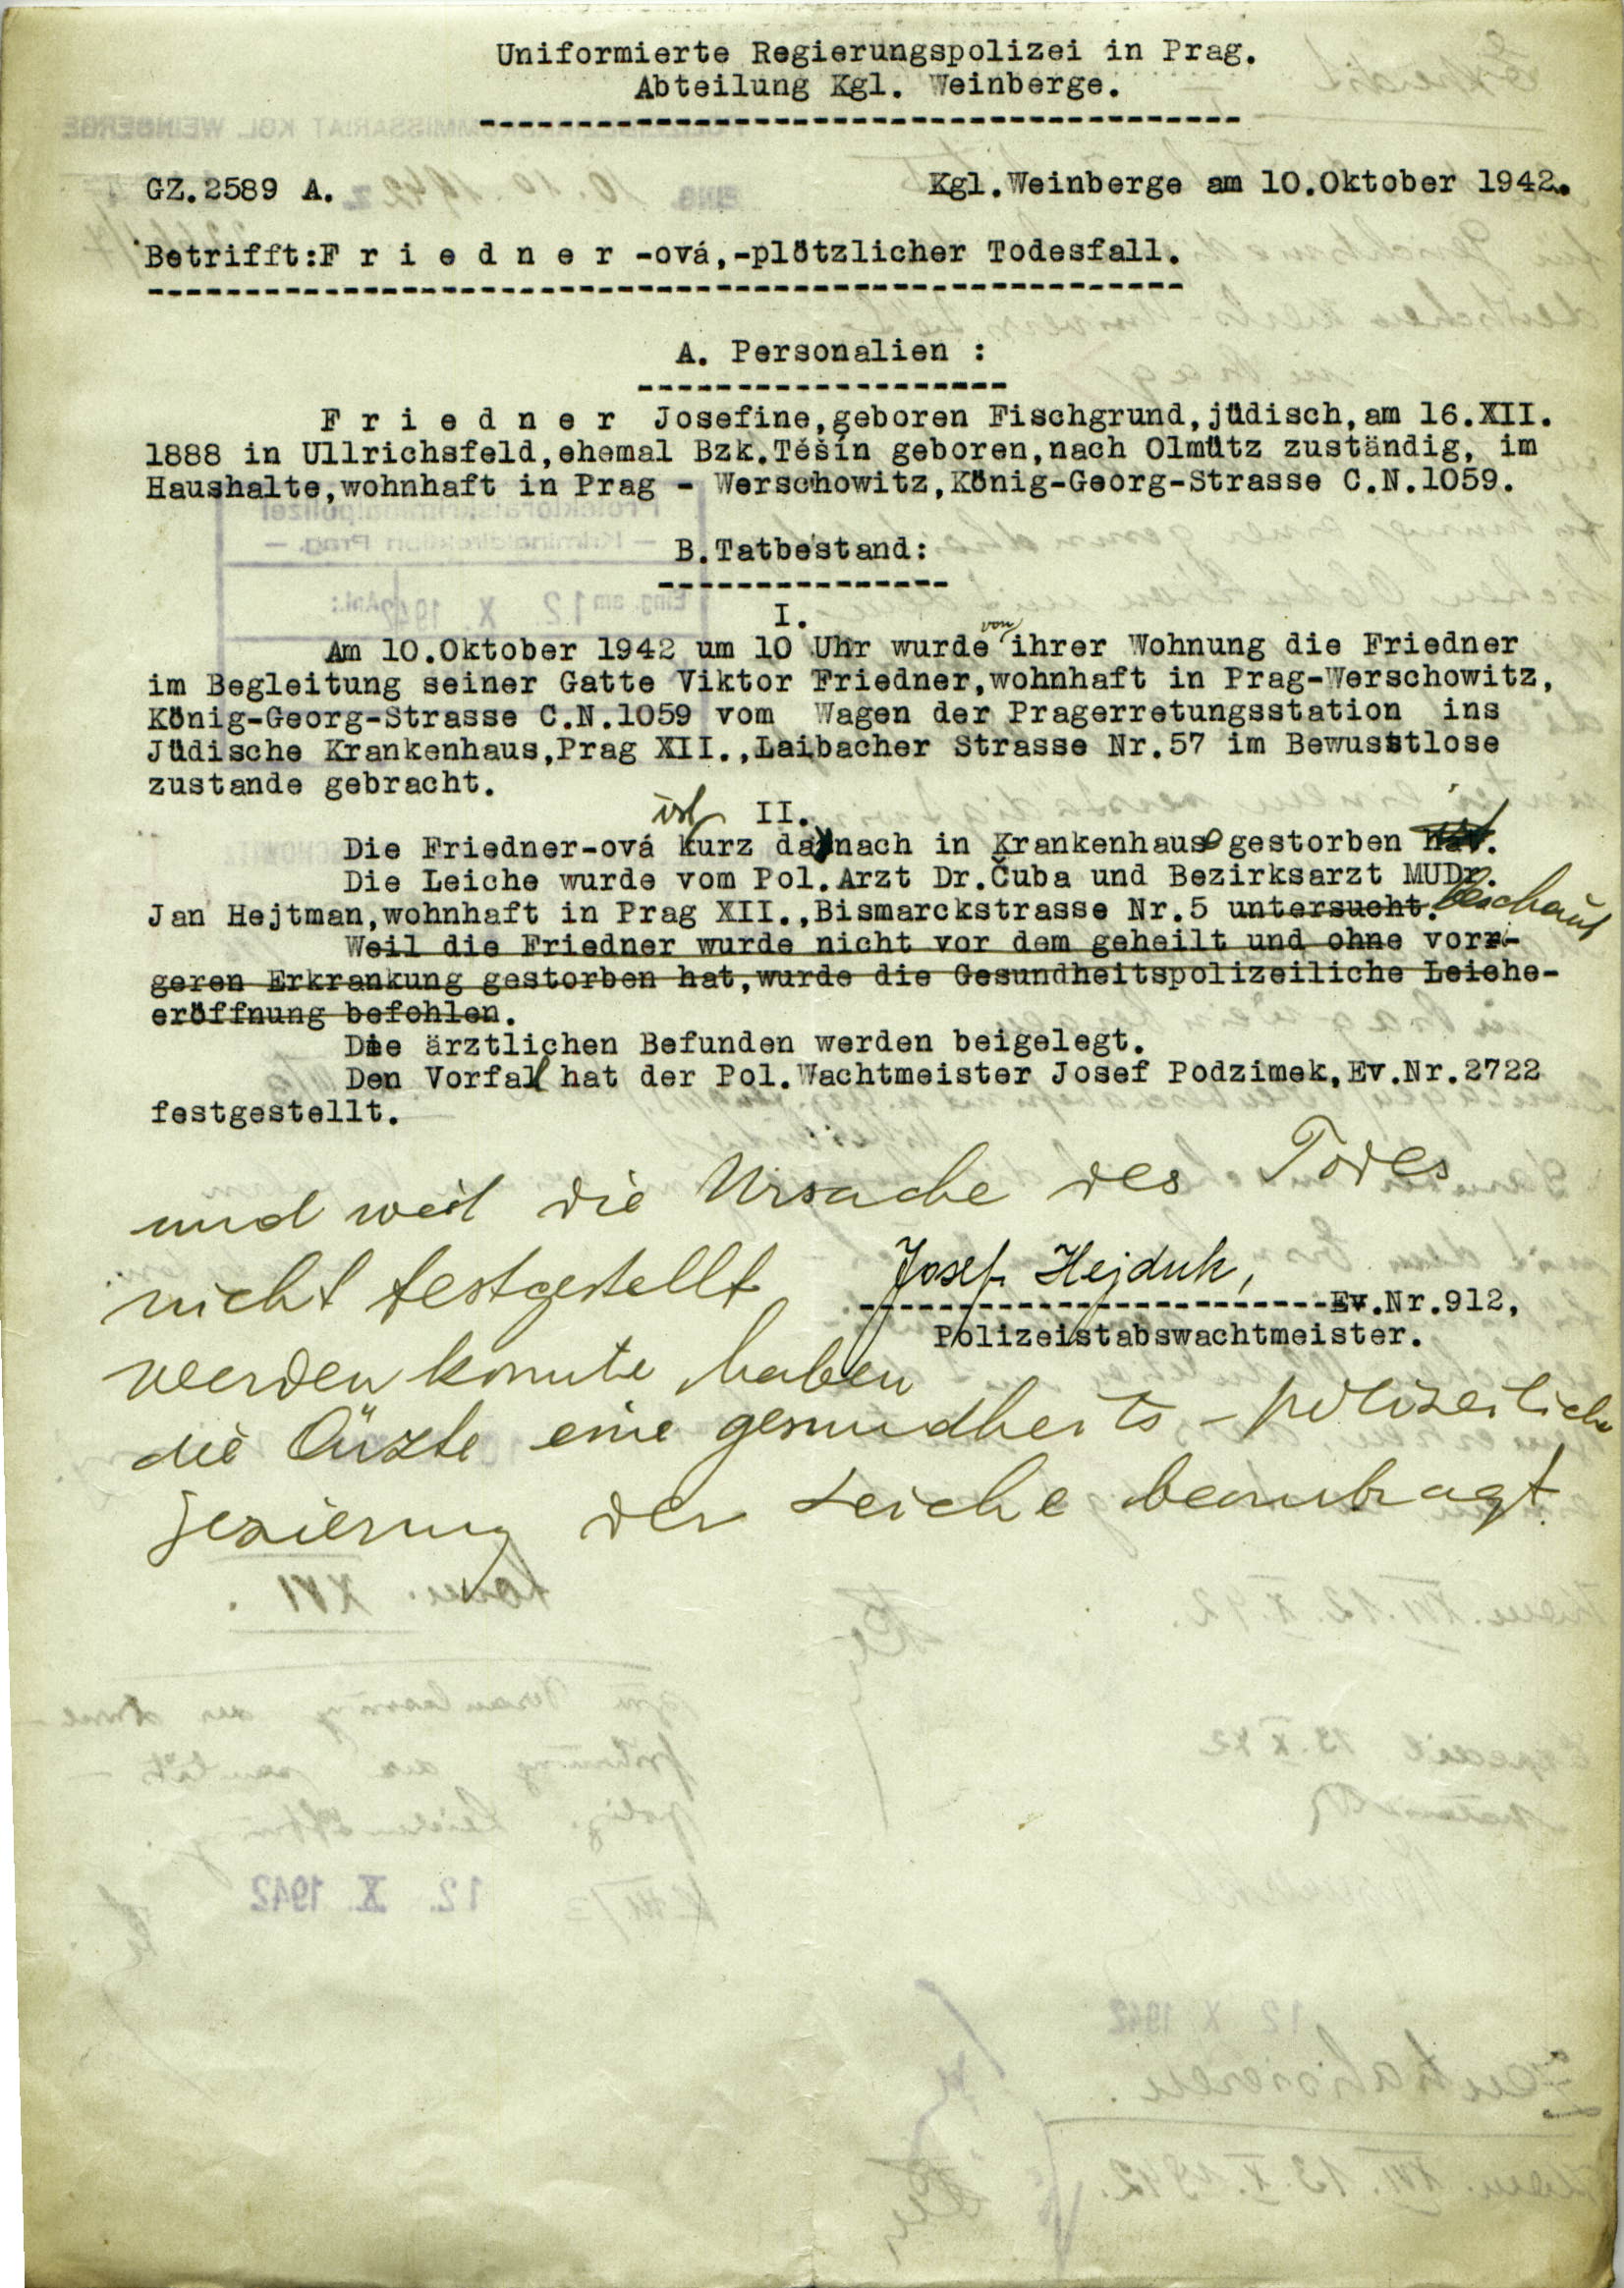 Uniformierte Regierungspolizei in Prag.
Abteilung Kgl. Weinberge.
GZ.2589 A.
Kgl.Weinberge am 10.Oktober 1942.
Betrifft:F r i e d n e r -ová,-plötzlicher Todesfall.
A. Personalien :
F r i e d n e r Josefine,geboren Fischgrund,jüdisch,am 16.XII.
1888 in Ullrichsfeld,ehemal Bzk.Téšín geboren,nach Olmütz zuständig, im
Haushalte,wohnhaft in Prag - Werschowitz,König-Georg-Strasse C.N.1059.
B.Tatbestand:
I.
Am 10.Oktober 1942 um 10 Uhr wurde von ihrer Wohnung die Friedner
im Begleitung seiner Gatte Viktor Friedner,wohnhaft in Prag-Werschowitz,
König-Georg-Strasse C.N.1059 vom Wagen der Pragerretungsstation ins
Jüdische Krankenhaus,Prag XII.,Laibacher Strasse Nr.57 im Bewusstlose
zustande gebracht.
II.
Die Friedner-ová ist kurz danach in Krankenhause gestorben hat.
Die Leiche wurde vom Pol.Arzt Dr.Čuba und Bezirksarzt MUDr.
Jan Hejtman,wohnhaft in Prag XII.,Bismarckstrasse Nr.5 untersucht. beschaut
Weil die Friedner wurde nicht vor dem geheilt und ohne vorri-
geren Erkrankung gestorben hat,wurde die Gesundheitspolizeiliche Leiche-
eröffnung befohlen.
Die ärztlichen Befunden werden beigelegt.
Den Vorfall hat der Pol.Wachtmeister Josef Podzimek,Ev.Nr.2722
festgestellt.
und weil die Ursache des Todes
nicht festgestellt
Josef Hejduk,
Ev.Nr.912,
Polizeistabswachtmeister.
werden konnte, haben
die Ärzte eine gesundheits-polizeiliche
Sezierung der Leiche beantragt.